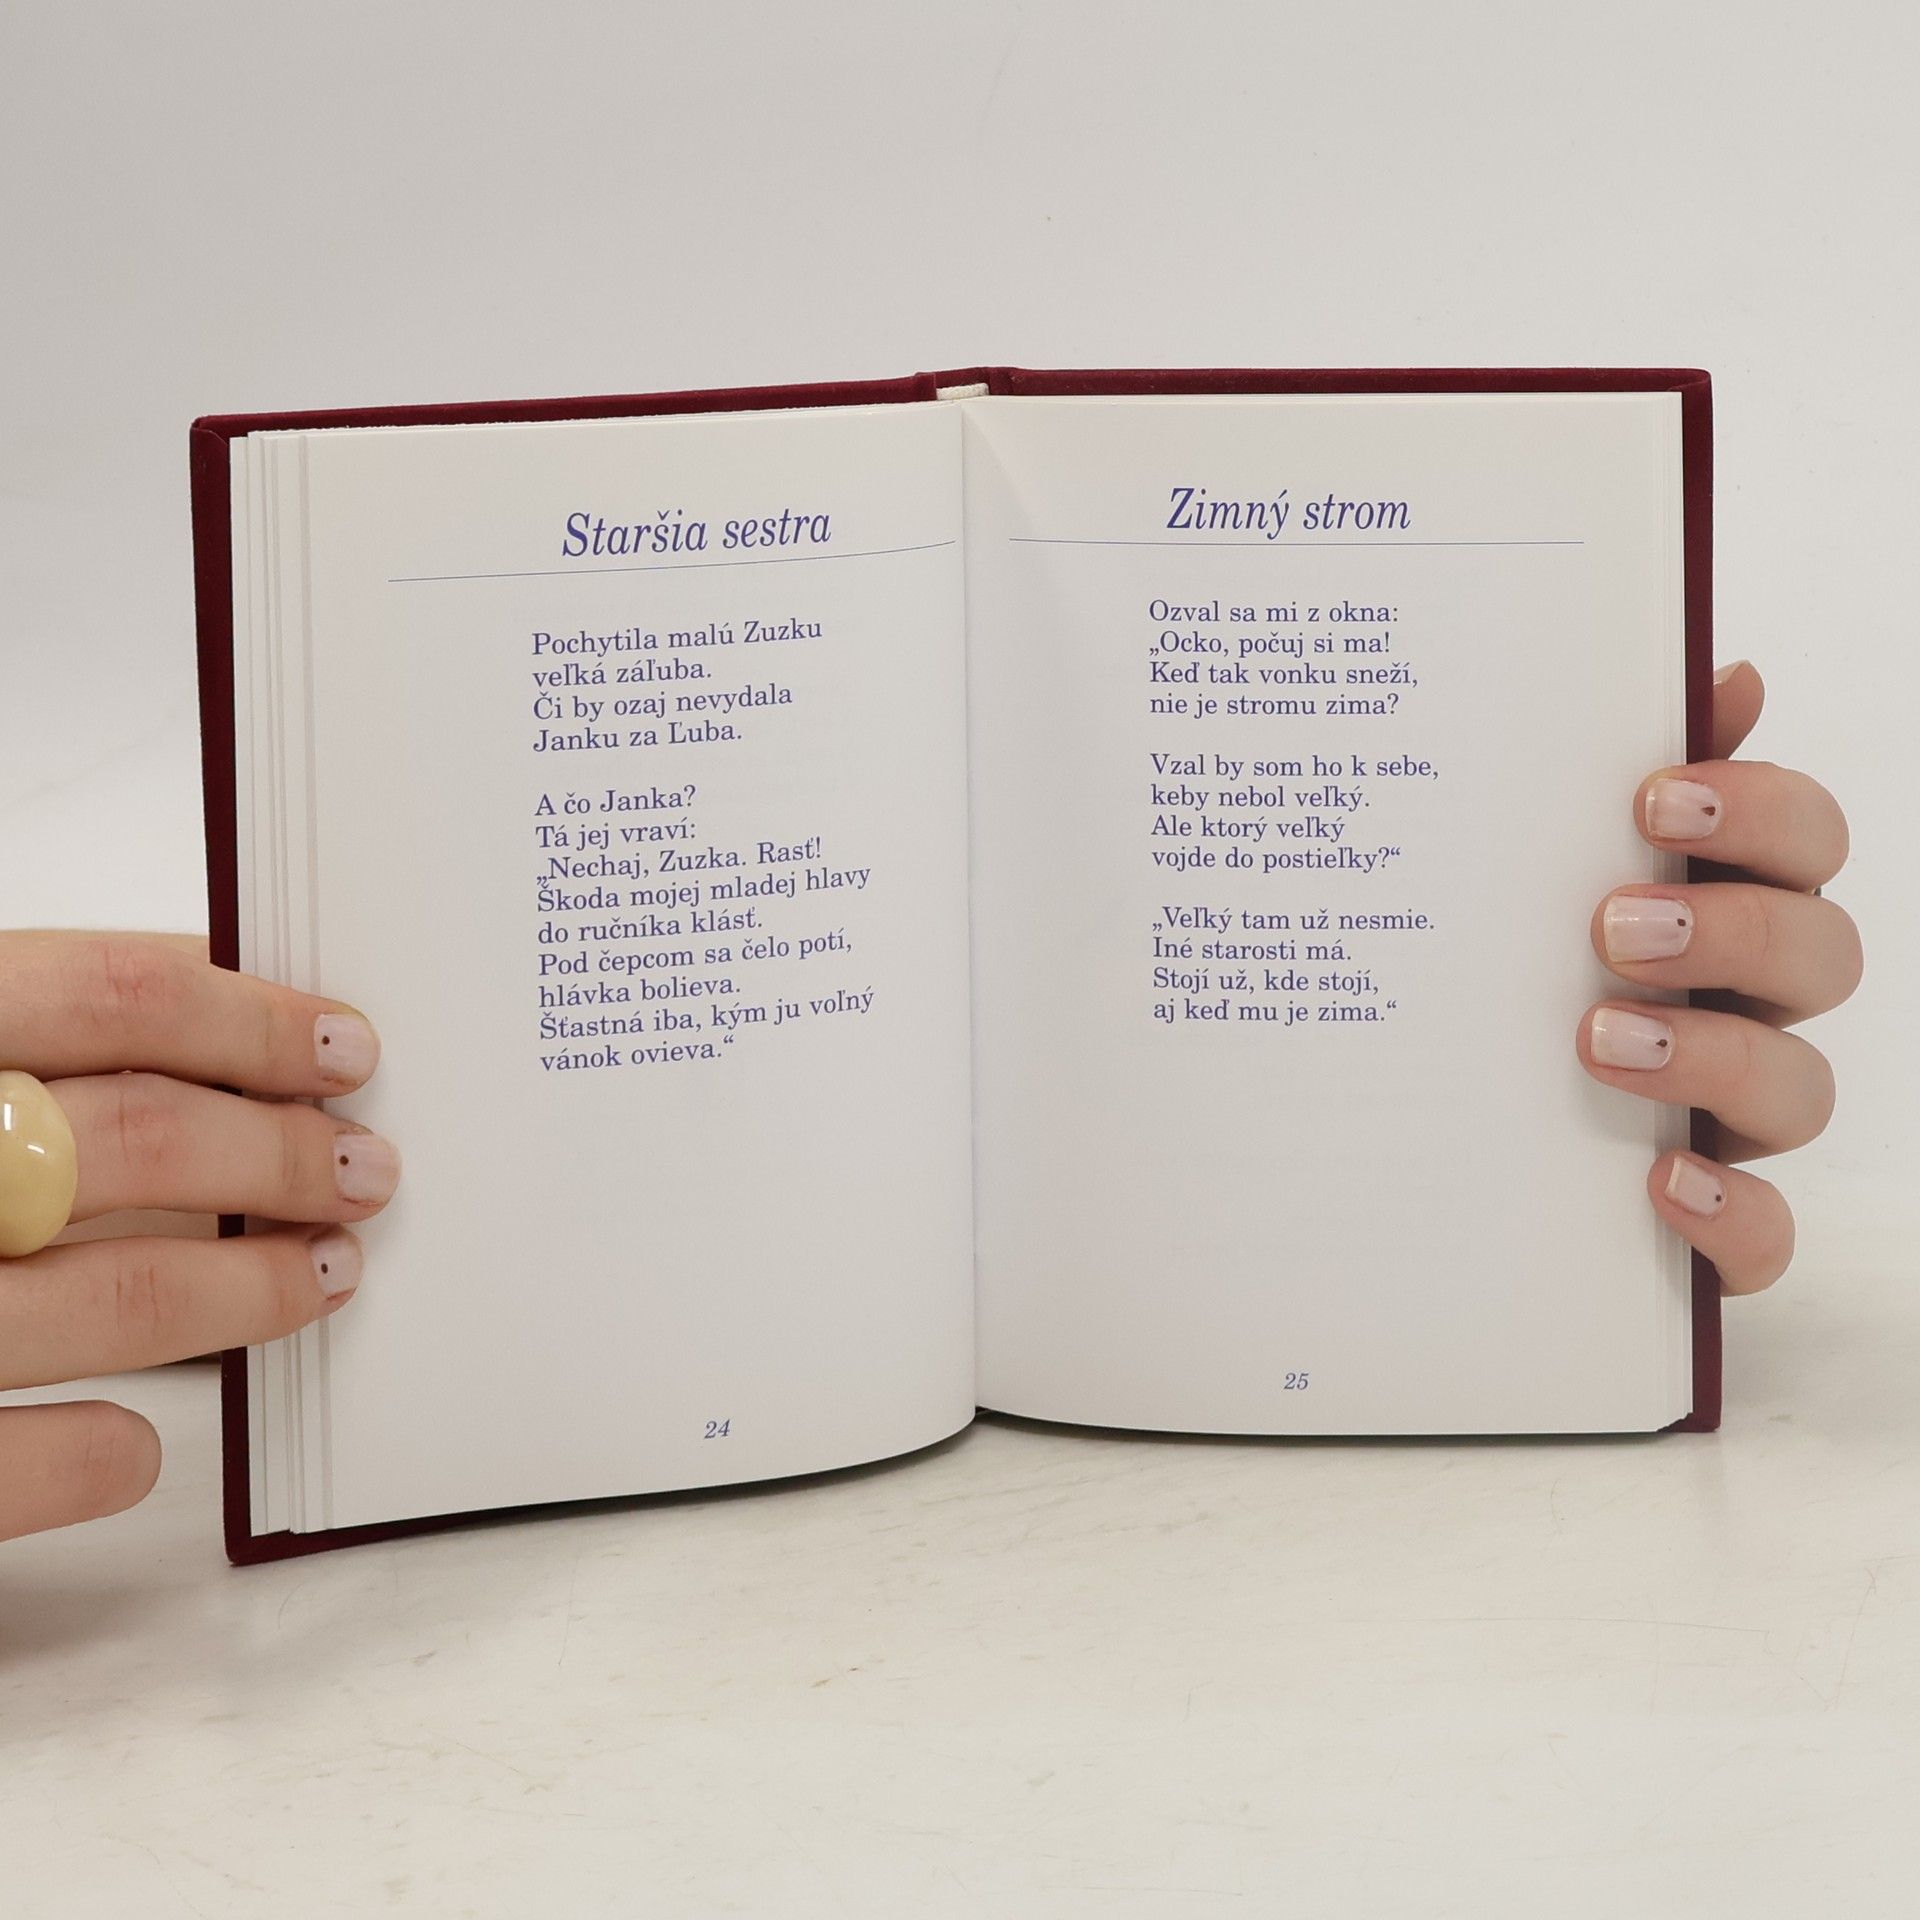 Staršia sestra
Pochytila malú Zuzku
veľká záľuba.
Či by ozaj nevydala
Janku za Ľuba.
A čo Janka?
Tá jej vraví:
„Nechaj, Zuzka. Rasť!
Škoda mojej mladej hlavy
do ručníka klásť.
Pod čepcom sa čelo potí,
hlávka bolieva.
Šťastná iba, kým ju voľný
vánok ovieva.“
24
Zimný strom
Ozval sa mi z okna:
„Ocko, počuj si ma!
Keď tak vonku sneží,
nie je stromu zima?
Vzal by som ho k sebe,
keby nebol veľký.
Ale ktorý veľký
vojde do postieľky?“
„Veľký tam už nesmie.
Iné starosti má.
Stojí už, kde stojí,
aj keď mu je zima.“
25